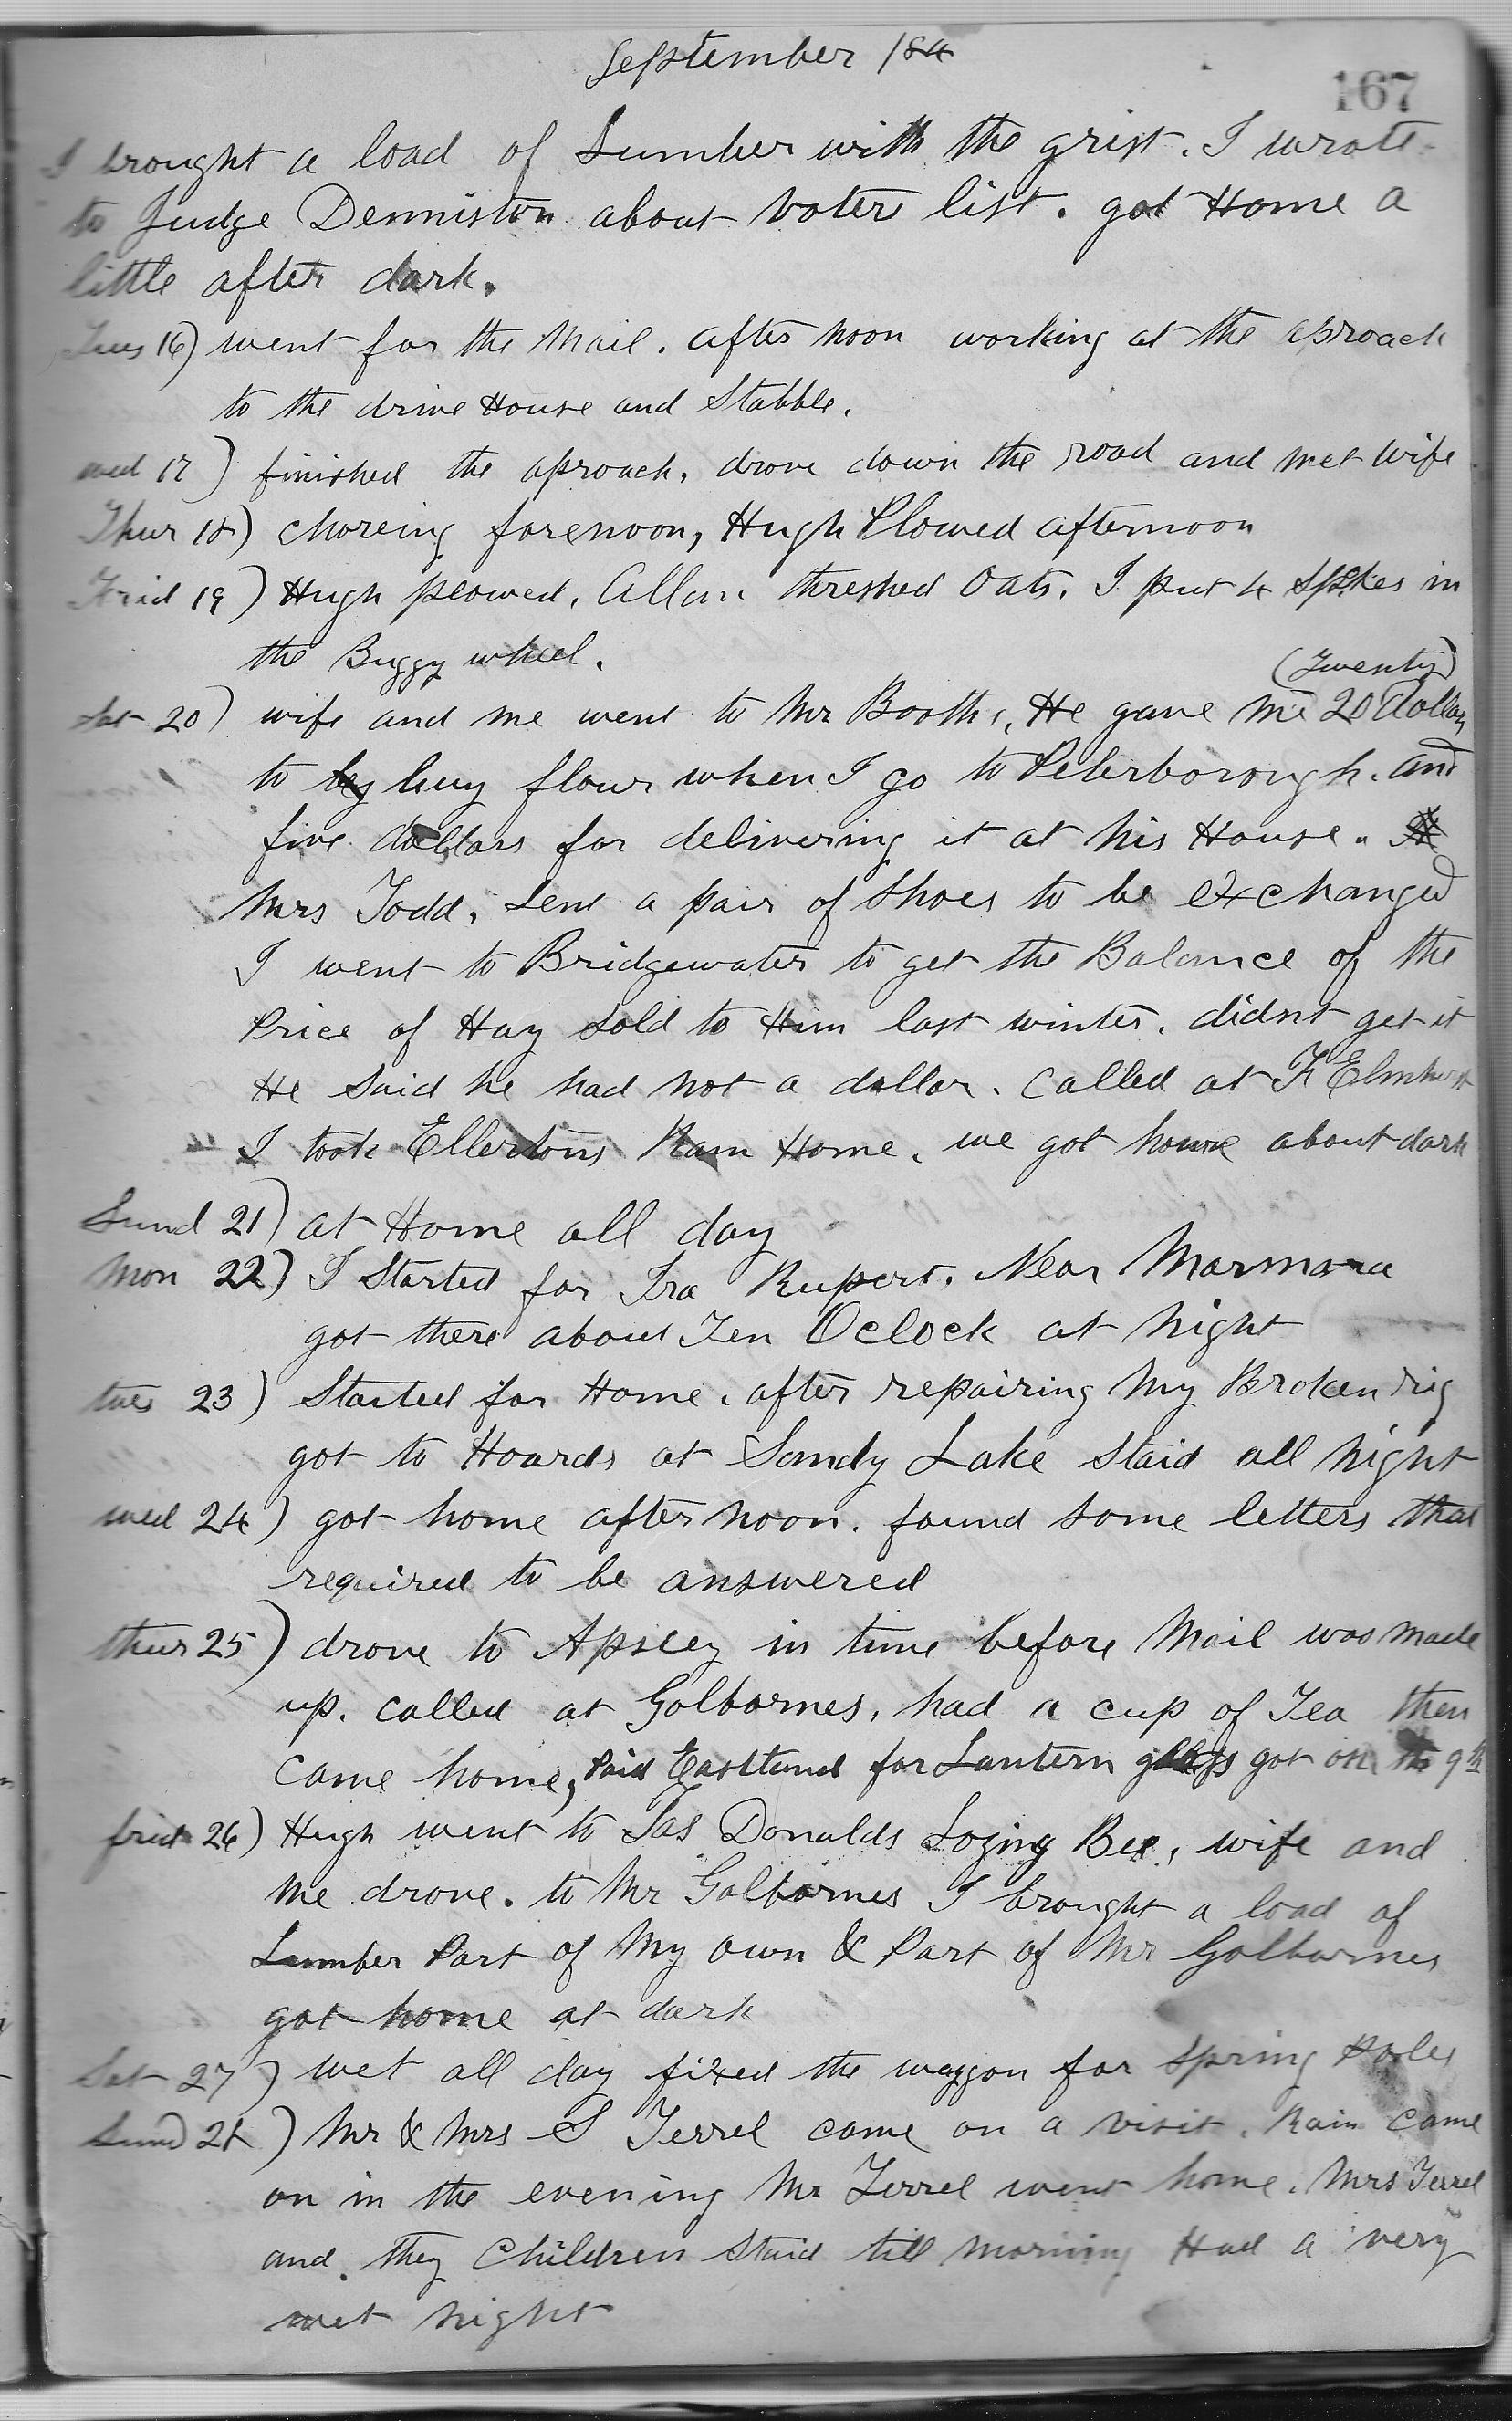 September /84
167
I brought a load of Lumber with the grist. I wrote
to Judge Denniston about voters list. got Home a
little after dark.
Tues 16) went for the Mail. after noon working at the aproach
to the drive House and Stabble.
wed 17) finished the aproach, drove down the road and met wife
Thur 18) choreing forenoon, Hugh Plowed afternoon
Frid 19) Hugh plowed, Allan threshed Oats. I put 4 Spokes in
the Buggy wheel.
(Twenty)
Sat 20) wife and me went to Mr Booths, He gave me 20 dollars
to buy flour when I go to Peterborough. and
five dollars for delivering it at his House.
Mrs Todd, Sent a pair of Shoes to be exchanged
I went to Bridgewater to get the Balance of the
Price of Hay Sold to Him last winter. didnt get it
He Said he had not a dollar. Called at F Elmhirst
I took Ellertons Ram Home. we got home about dark
Sund 21) at Home all day
Mon 22) I Started for Ira Ruperts. Near Marmora
got there about Ten Oclock at Night
tues 23) Started for Home. after repairing My Broken rig
got to Hoards at Sandy Lake Staid all Night
wed 24) got home after noon. found Some letters that
required to be answered
thur 25) drove to Apsley in time before Mail was made
up. Called at Golbornes, had a cup of Tea then
Came home, Paid Eastland for Lantern glass got on the 9th
frid 26) Hugh went to Jas Donalds Loging Bee, wife and
me drove. to Mr Golbornes I brought a load of
Lumber Part of My own & Part of Mr Golbornes
got home at dark
Sat 27) wet all day fixed the waggon for Spring Poles
Sund 28) Mr & Mrs S Terrel came on a visit. Rain Came
on in the evening Mr Terrel went home. Mrs Terrel
and they Children Staid till morning Had a very
wet night